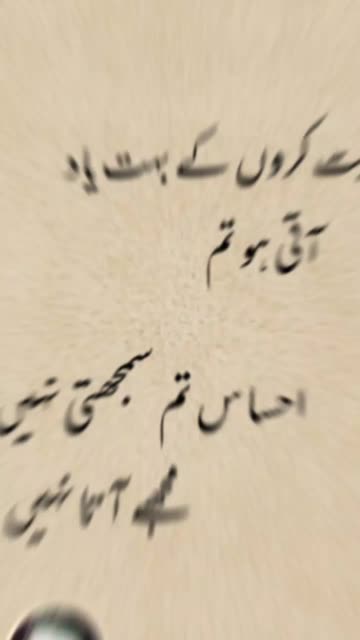 کروں کے بہت یاد
آتی ہو تم
احساس تم سمجھتی نہیں
مجھے آتا نہیں